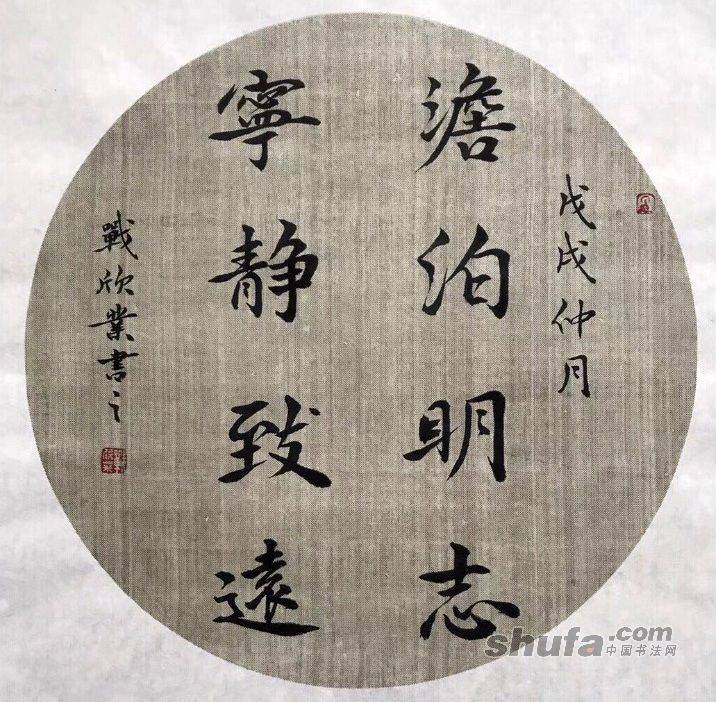 戊戌仲月
澹泊明志
寧静致遠
戰欣業書之
shufa.com
中国书法网